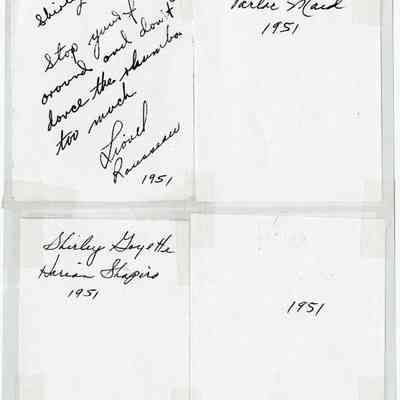 Shirley
Stop
around and don't
dance the rhumba
too much
Lionel
Rousseau
1951
Parlor Maid
1951
Shirley Goyette
Shapiro
1951
1951